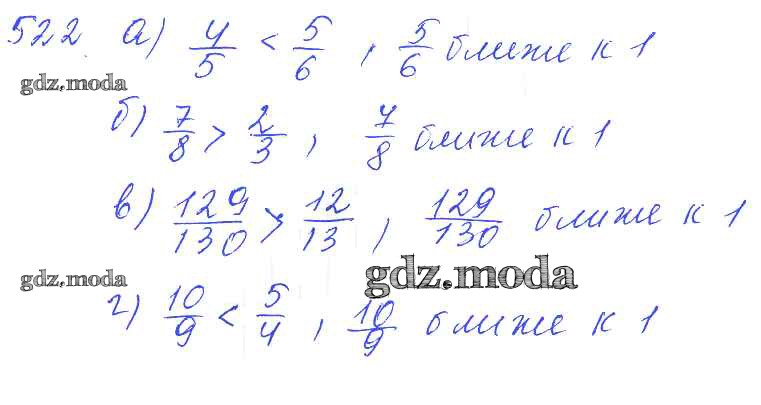 522 а) 4/5 < 5/6 , 5/6 ближе к 1
gdz.moda
б) 7/8 > 2/3 , 7/8 ближе к 1
в) 129/130 > 12/13 , 129/130 ближе к 1
gdz.moda
gdz.moda
г) 10/9 < 5/4 , 10/9 ближе к 1